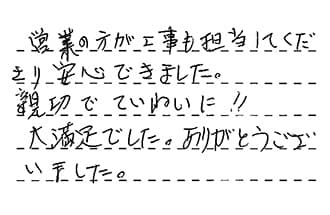 営業の方が工事も担当してくだ
さり安心できました。
親切でていねいに!!
大満足でした。ありがとうござ
いました。